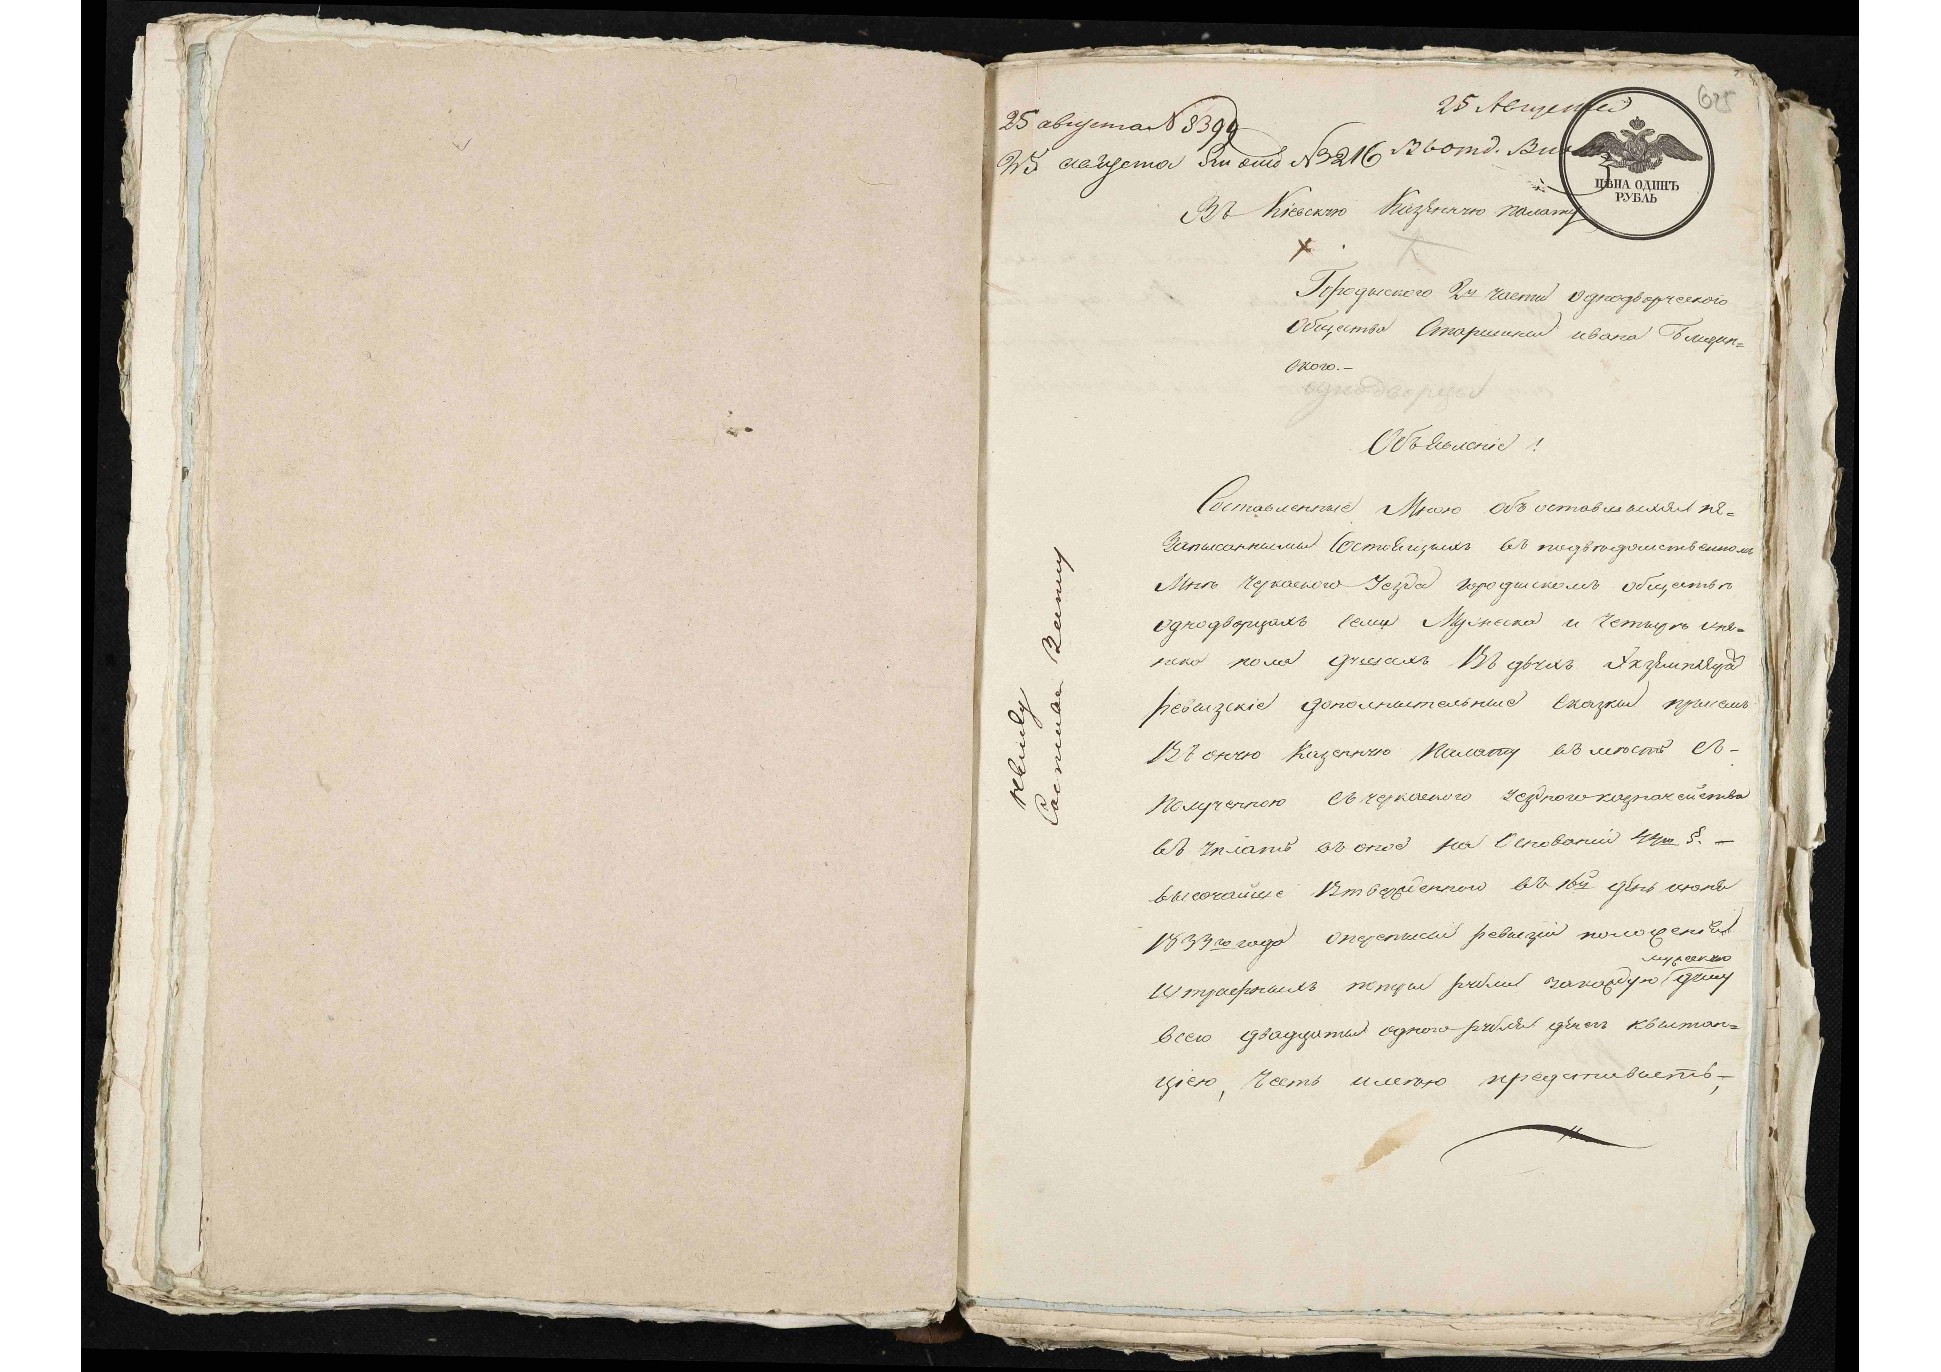 25 августа N 8399
25 августа N 3216
25 Августа
В 6 отд.
625
ЦѢНА ОДИНЪ
РУБЛЬ
Въ Кіевскую Казенную палату
Городиского 2й части однодворческого
общества Старшины ивана
ского.—
однодворцы
Объявленіе!
Составленные Мною объ оставшихся не=
записанными Состоящихъ въ подведомственномъ
Мнѣ Черкаского Уезда городискомъ обществѣ
однодворцахъ семи Мужеска и Четырѣ жен=
ска пола душахъ Въ двухъ Екземпляра
ревизскіе дополнительные сказки
Въ оную Казенную Палату въместѣ съ—
Полученною съ черкаского уездного казначейства
въ уплатѣ въ оное на Основаніи §.—
высочайше Утвержденного въ 16й день июня
1833го года ревизіи положенія
Штрафныхъ по три рубли закаждую мужскую душу
всего двадцати одного рубля квитан=
ціею, Честь имею представить,—
ревизу